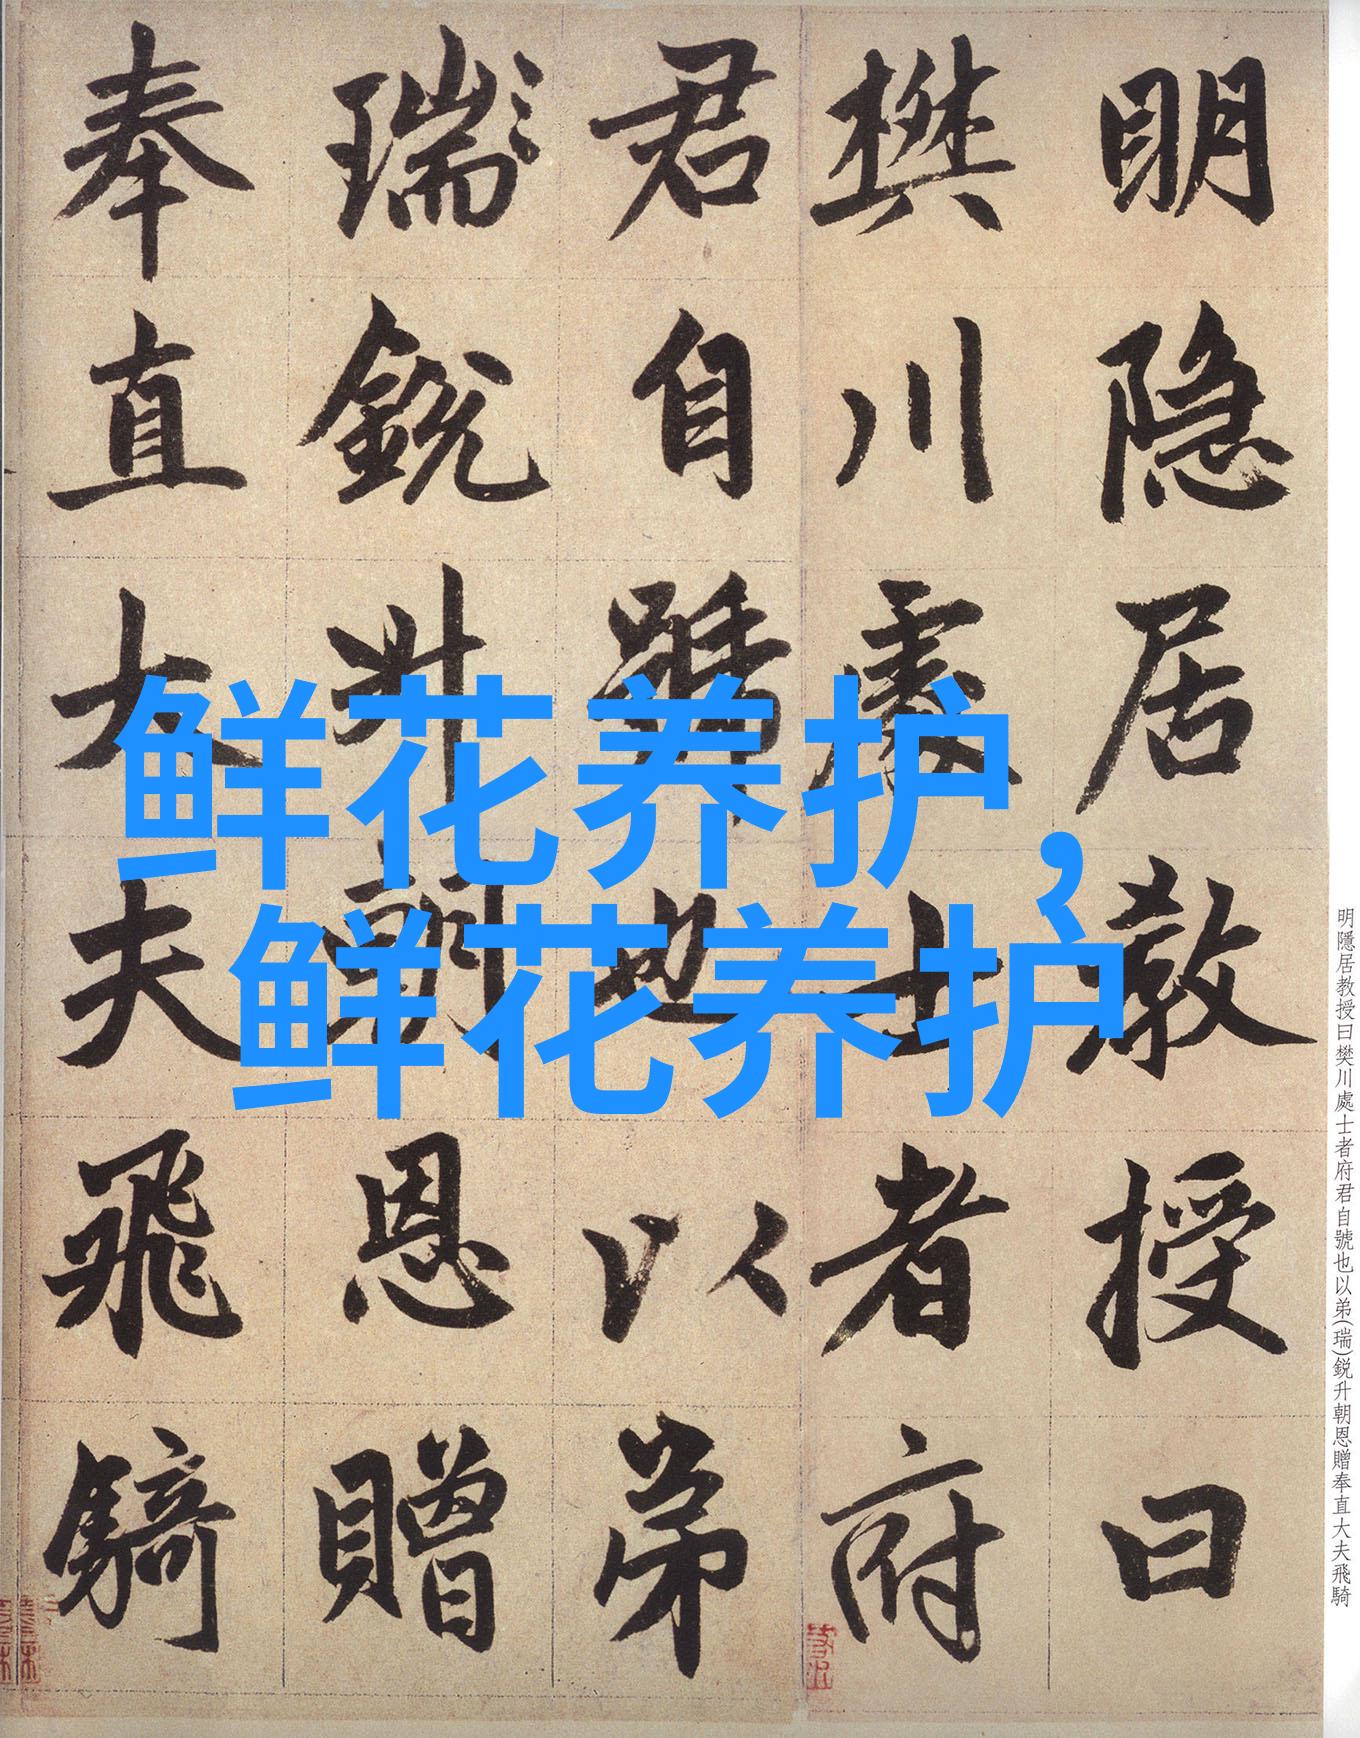 明隐居教授曰
樊川處士者府
君自號也以弟
瑞銳升朝恩贈
奉直大夫飛騎
鲜花养护，
鲜花养护
明隱居教授曰樊川處士者府君自號也以弟(瑞)鋭升朝恩贈奉直大夫飛騎